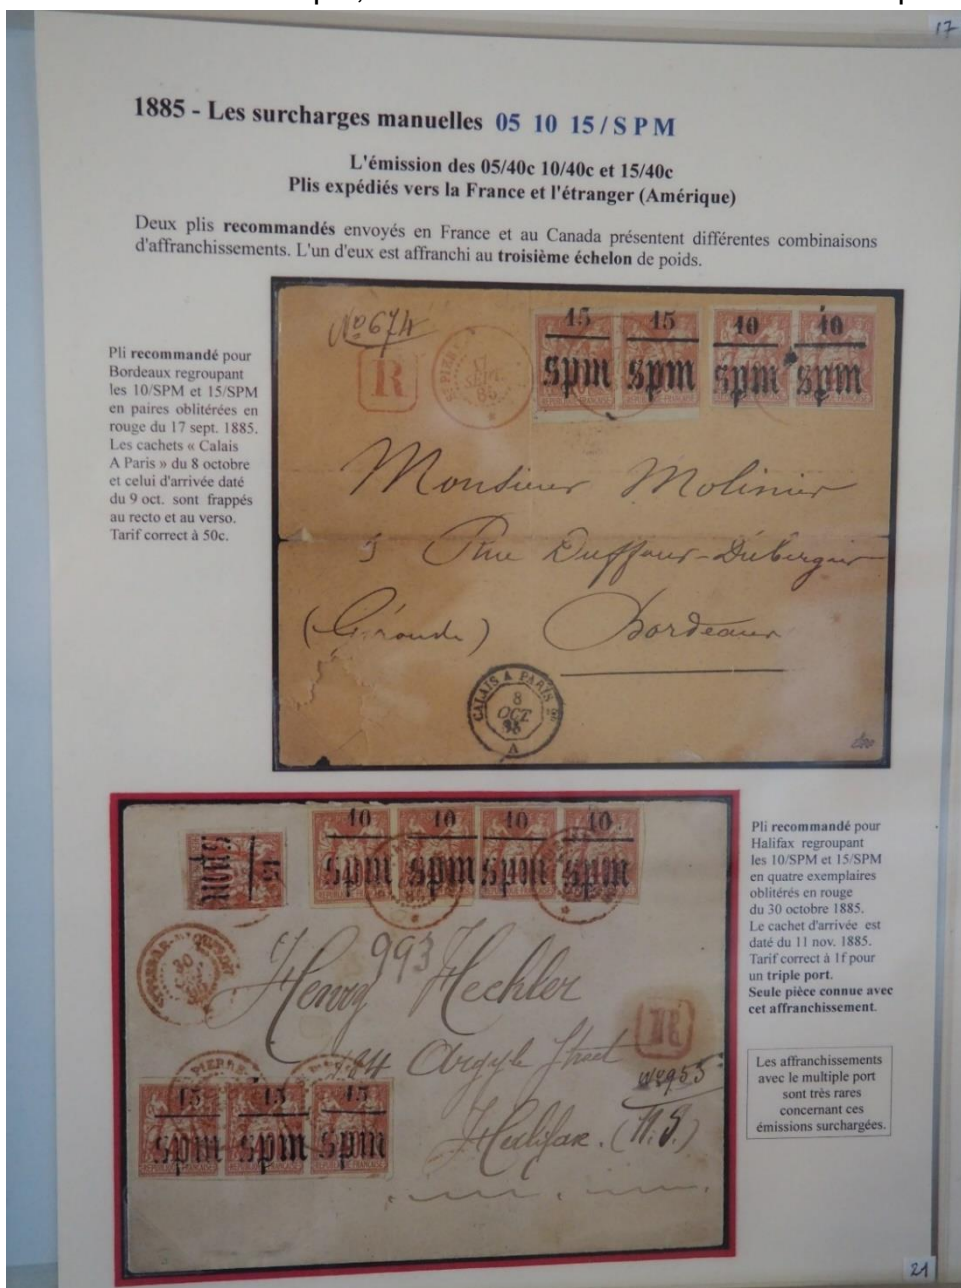 17
1885 - Les surcharges manuelles 05 10 15 / S P M
L'émission des 05/40c 10/40c et 15/40c
Plis expédiés vers la France et l'étranger (Amérique)
Deux plis recommandés envoyés en France et au Canada présentent différentes combinaisons
d'affranchissements. L'un d'eux est affranchi au troisième échelon de poids.
Pli recommandé pour
Bordeaux regroupant
les 10/SPM et 15/SPM
en paires oblitérées en
rouge du 17 sept. 1885.
Les cachets « Calais
A Paris » du 8 octobre
et celui d'arrivée daté
du 9 oct. sont frappés
au recto et au verso.
Tarif correct à 50c.
No 674
R
15 15 10 10
spm spm spm spm
Monsieur Molinier
5 Rue Duffour-Dubergier
(Gironde) Bordeaux
CALAIS A PARIS
8
OCT
85
A
10 10 10 10
spm spm spm spm
15
spm
993
Henry Hechler
184 Argyle Street
R
No 953
Halifax. (N.S.)
15 15 15
spm spm spm
Pli recommandé pour
Halifax regroupant
les 10/SPM et 15/SPM
en quatre exemplaires
oblitérés en rouge
du 30 octobre 1885.
Le cachet d'arrivée est
daté du 11 nov. 1885.
Tarif correct à 1f pour
un triple port.
Seule pièce connue avec
cet affranchissement.
Les affranchissements
avec le multiple port
sont très rares
concernant ces
émissions surchargées.
21